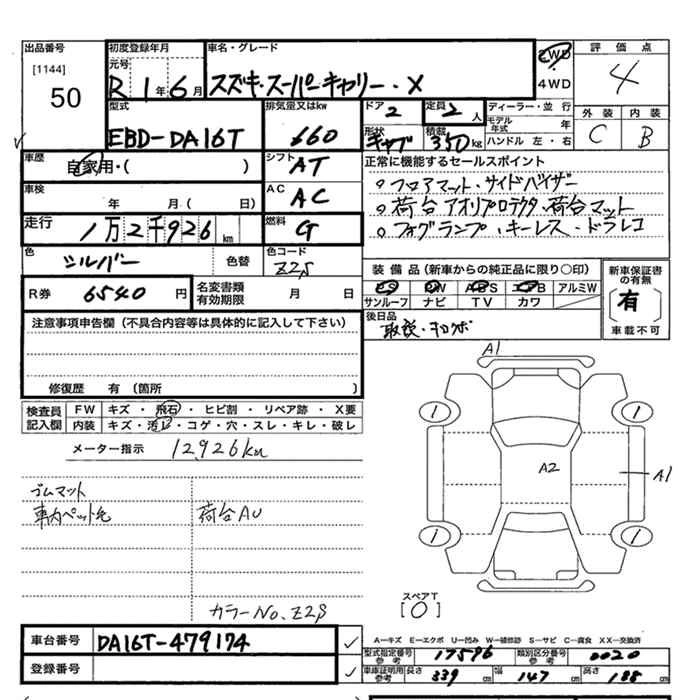 出品番号
[1144]
50
初度登録年月
元号
R 1年 6月
車名・グレード
スズキ・スーパーキャリー・X
2WD
4WD
評価点
4
外装 内装
C B
型式
EBD-DA16T
排気量又はkw
660
ドア
2
定員
2人
形状
キャブ
積載
350kg
ディーラー・並行
モデル年式 年
ハンドル 左・右
車歴
自家用・( )
シフト
AT
車検
年 月( 日)
AC
AC
走行
1万2千926km
燃料
G
色
シルバー
色替
色コード
Z2S
R券
6540円
名変書類有効期限
月 日
正常に機能するセールスポイント
○フロアマット・サイドバイザー
○荷台アオリプロテクタ、荷台マット
○フォグランプ、キーレス・ドラレコ
装備品(新車からの純正品に限り○印)
PS PW ABS エアB アルミW
サンルーフ ナビ TV カワ
後日品
取説・キロクボ
新車保証書の有無
有
車載不可
注意事項申告欄(不具合内容等は具体的に記入して下さい)
修復歴 有(箇所 )
検査員記入欄
FW キズ・飛石・ヒビ割・リペア跡・X要
内装 キズ・汚レ・コゲ・穴・スレ・キレ・破レ
メーター指示 12,926km
ゴムマット
車内ペット毛
荷台AU
カラーNo.Z2S
A1
1 1
A2
A1
1 1
スペアT
[0]
車台番号
DA16T-479174
登録番号
A―キズ E―エクボ U―凹み W―補修跡 S―サビ C―腐食 XX―交換済
型式指定番号 参考
17596
類別区分番号 参考
0020
車庫証明用 参考
長さ 339cm
幅 147cm
高さ 188cm